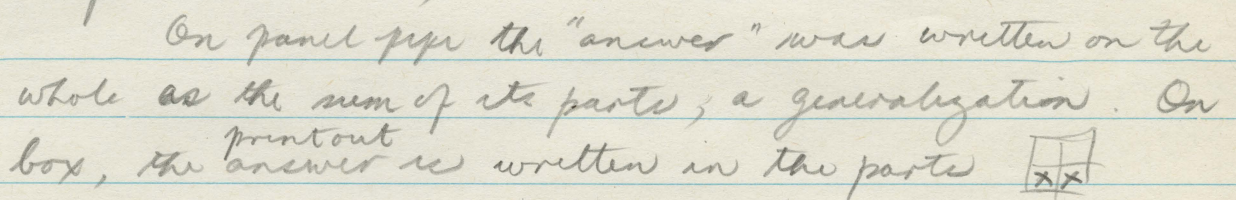 On panel pipe the "answer" was written on the
whole as the sum of its parts, a generalization. On
printout
box, the answer is written in the parts x x